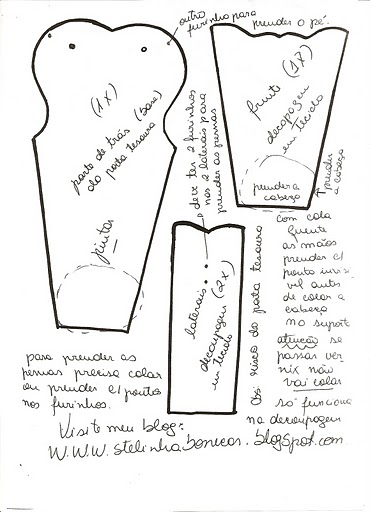 outro
furinho para
prender o pé.
(1X)
parte de trás (base)
do porta tesoura
pintar
frente (1X)
decopagem
em tecido
prender a
cabeça
prender
a cabeça
deve ter 2 furinhos
nas 2 laterais para
prender as pernas
laterais
decoupagem (2X)
em tecido
Obs: risco do porta tesoura
com cola
quente
as mãos
prender c/
ponto invisi
vel antes
de colar a
cabeça
no suport
atenção se
passar ver
nix não
vai colar
só funciona
na decoupagem
para prender as
pernas precisa colar
ou prender c/ pontos
nos furinhos.
Visite meu blog:
W.W.W. stelinhabonecas.blogspot.com